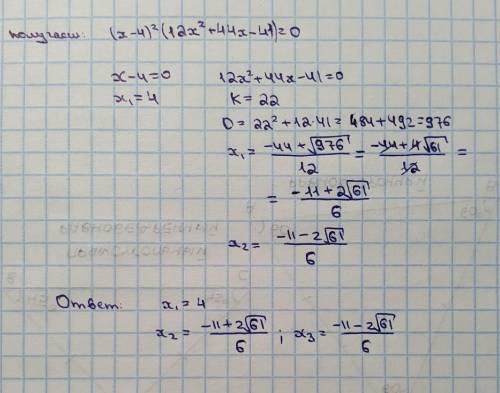 получаем: (x-4)²(12x²+44x-41)=0
x-4=0 12x²+44x-41=0
x₁=4 K=22
D=22²+12·41=484+492=976
x₁= (-44+√976)/12 = (-44+4√61)/12 =
= (-11+2√61)/6
x₂= (-11-2√61)/6
Ответ: x₁=4
x₂= (-11+2√61)/6 ; x₃= (-11-2√61)/6